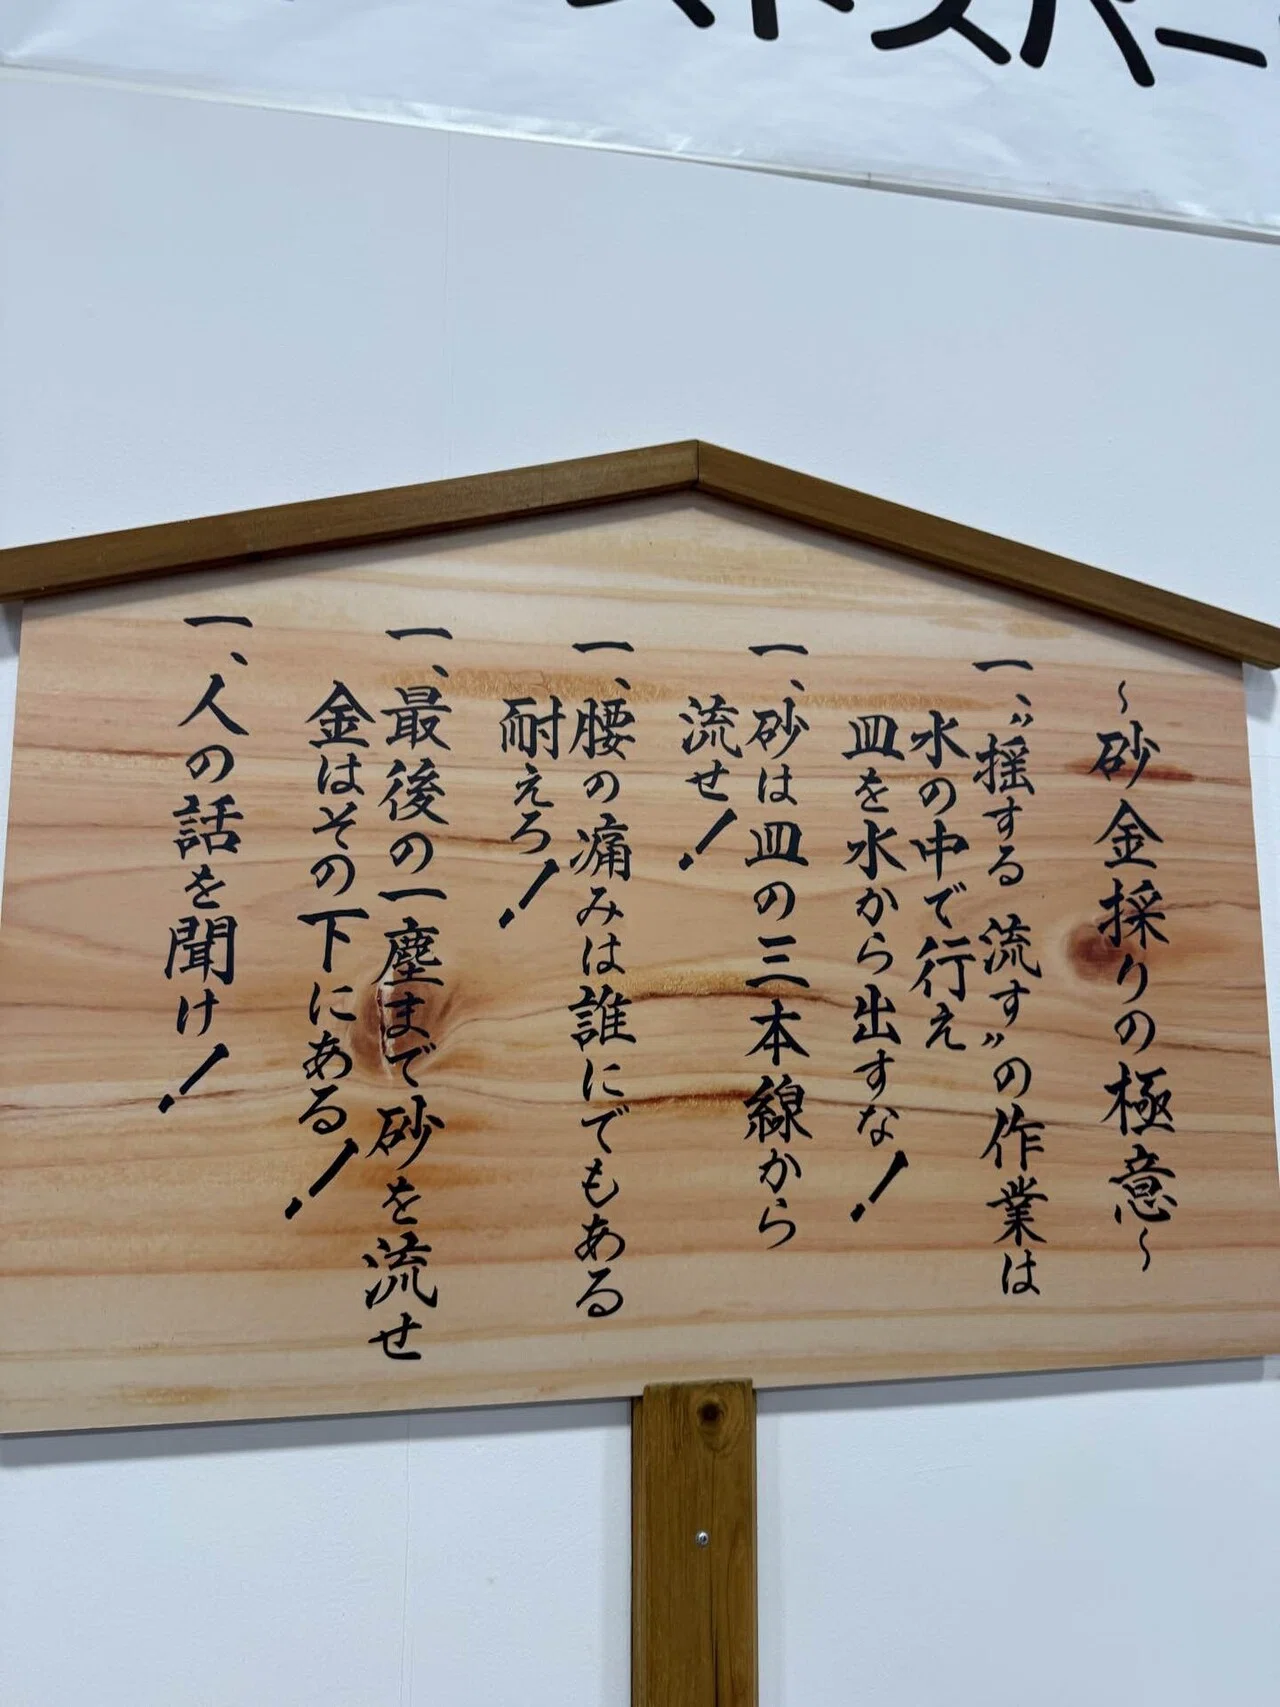 ストスパー
～砂金採りの極意～
一、〝揺する 流す〟の作業は
水の中で行え
皿を水から出すな！
一、砂は皿の三本線から
流せ！
一、腰の痛みは誰にでもある
耐えろ！
一、最後の一塵まで砂を流せ
金はその下にある！
一、人の話を聞け！